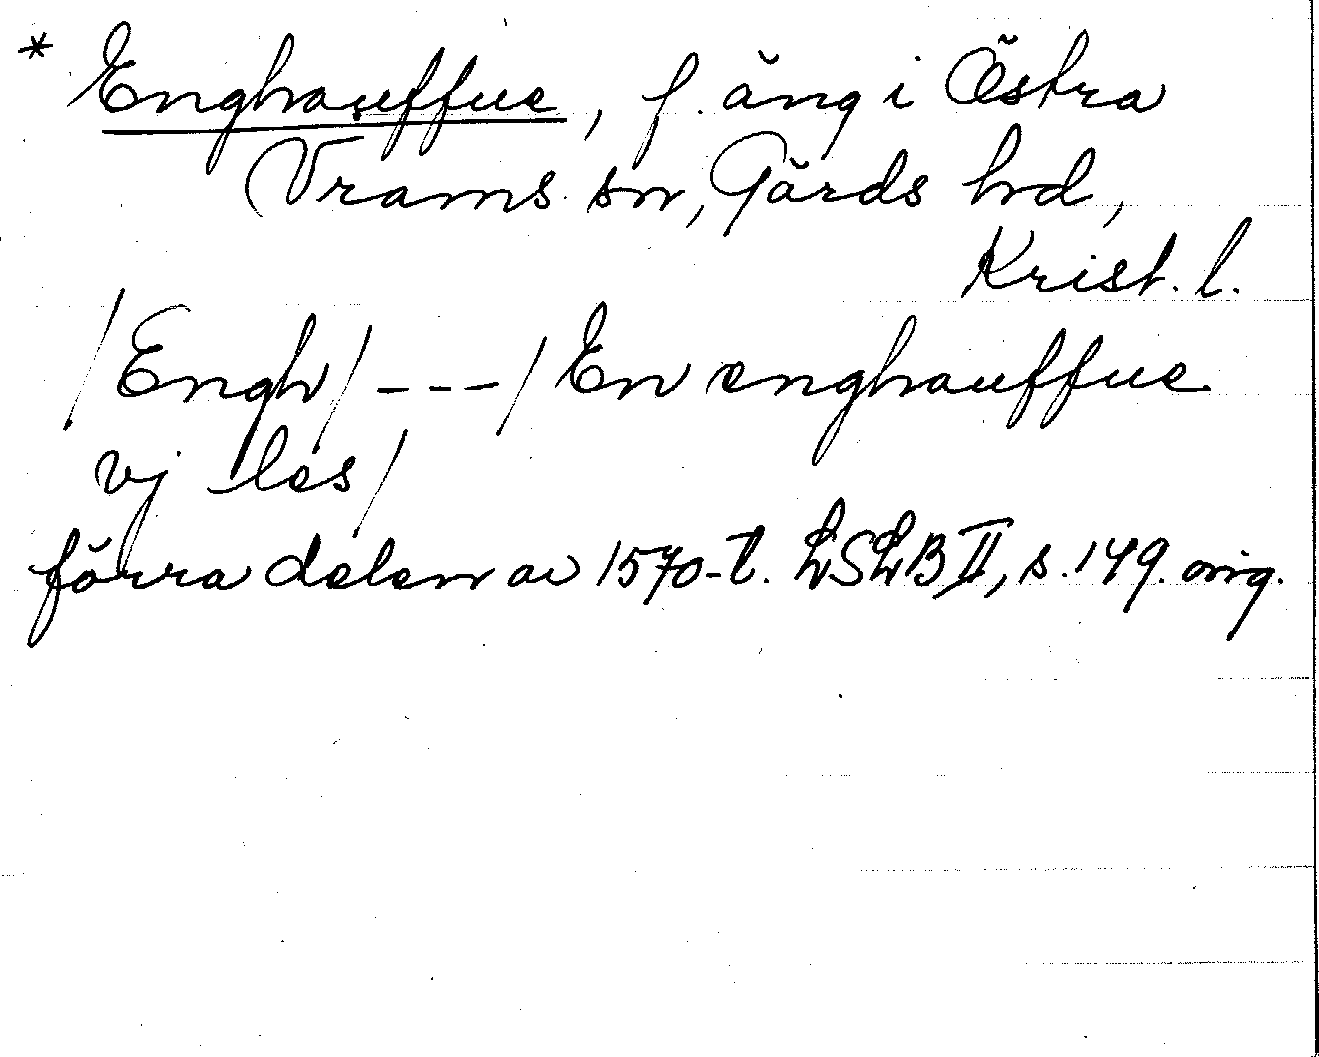 * Enghauffue, f. äng i Östra
Vrams sn, Gärds hd,
Krist. l.
/Engh/ - - - / En enghauffue
vj les /
förra delen av 1570-t. LSLB II, s. 149. orig.